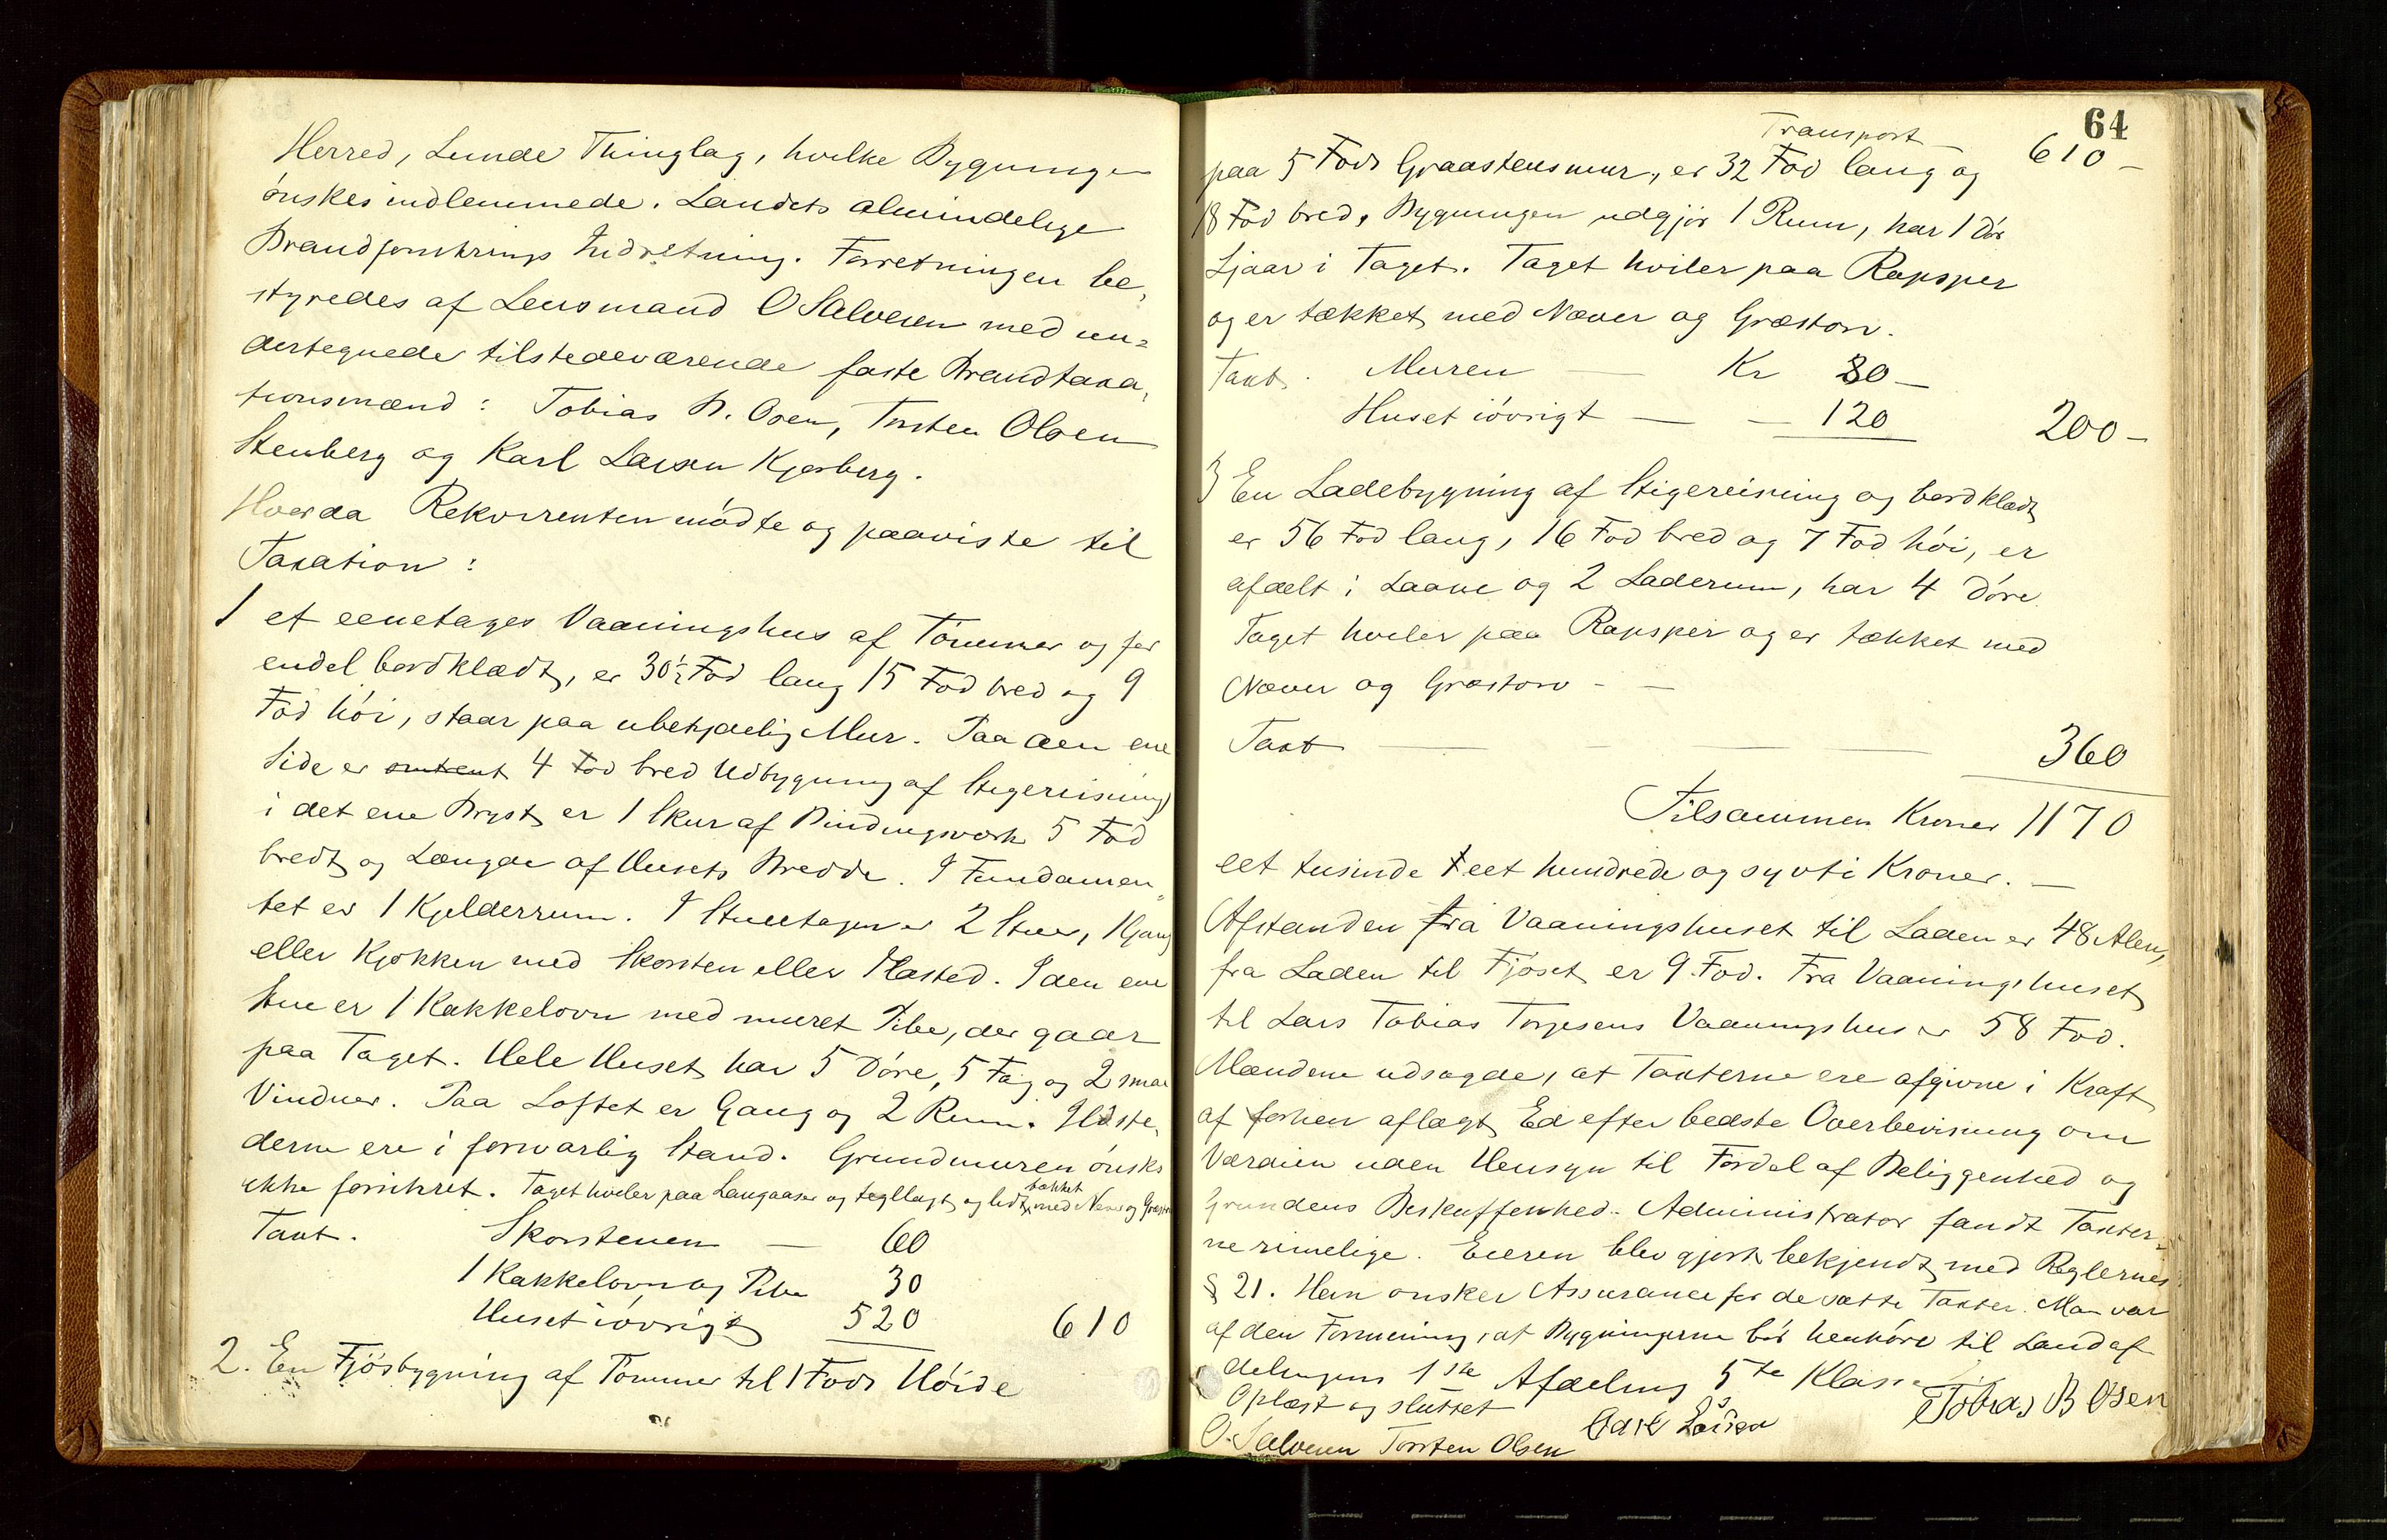 Herred, Lunde Thinglag, hvilke Bygninger
ønskes indlemmede i Landets almindelige
Brandforsikrings Indretning. Forretningen be-
styredes af Lensmand O Salvesen med un-
dertegnede tilstedeværende faste Brandtaxa-
tionsmænd: Tobias B. Osen, Torsten Olsen
Stenberg og Karl Larsen Kjørberg.
Hvorda Rekvirenten mødte og paaviste til
Taxation:
1 et eenetages Vaaningshus af Tømmer og for
endel bordklædt, er 30½ Fod lang 15 Fod bred og 9
Fod høi, staar paa ubetydelig Mur. Paa den ene
Side er omtrent 4 Fod bred Udbygning af Stigereisning
i det ene Bryst er 1 Skur af Bindingsværk 5 Fod
bredt og Længde af Husets Bredde. I Fundamen-
tet er 1 Kjelderrum. I Stueetagen er 2 Stuer, 1 Gang
eller Kjøkken med Skorsten eller Ilasted. I den ene
Stue er 1 Kakkelovn med muret Pibe, der gaar
paa Taget. Hele Huset har 5 Døre, 5 Fag og 2 smaa
Vinduer. Paa Loftet er Gang og 2 Rum. Ildste-
derne ere i forsvarlig Stand. Grundmuren ønskes
ikke forsikret. Taget hviler paa Langaaser og tegllagt og lidt tækket med Næver og Græstorv
Taxt. Skorstenen — 60
1 Kakkelovn og Pibe 30
Huset iøvrigt 520 610
2. En Fjøsbygning af Tømmer til 1 Fods Høide
64
Transport 610 —
paa 5 Fods Graastensmur, er 32 Fod lang og
18 Fod bred, Bygningen udgjør 1 Rum, har 1 Dør
Ljaar i Taget. Taget hviler paa Rapsper
og er tækket med Næver og Græstorv.
Taxt. Muren — Kr 80 —
Huset iøvrigt — — 120 200 —
3 En Ladebygning af Stigereisning og bordklædt
er 56 Fod lang, 16 Fod bred og 7 Fod høi, er
afdelt i Laave og 2 Laderum, har 4 Døre.
Taget hviler paa Rapsper og er tækket med
Næver og Græstorv - —
Taxt — — — 360
Tilsammen Kroner 1170
eet tusinde eet hundrede og sytti Kroner. —
Afstanden fra Vaaningshuset til Laden er 48 Alen,
fra Laden til Fjøset er 9 Fod. Fra Vaaningshuset
til Lars Tobias Torjesens Vaaningshus er 58 Fod.
Mændene udsagde, at Taxterne ere afgivne i Kraft
af forhen aflagt Ed efter bedste Overbevisning om
Værdien uden Hensyn til Fordel af Beliggenhed og
Grundens Beskaffenhed. Administrator fandt Taxter-
ne rimelige. Eieren blev gjort bekjendt med Reglernes
§ 21. Han ønsker Assurance for de satte Taxter. Man var
af den Formening, at Bygningerne bør henhøre til Landaf-
delingens 1ste Afdeling 5te Klasse
Oplæst og sluttet
O. Salvesen Torsten Olsen Carl Larsen Tobias B Osen